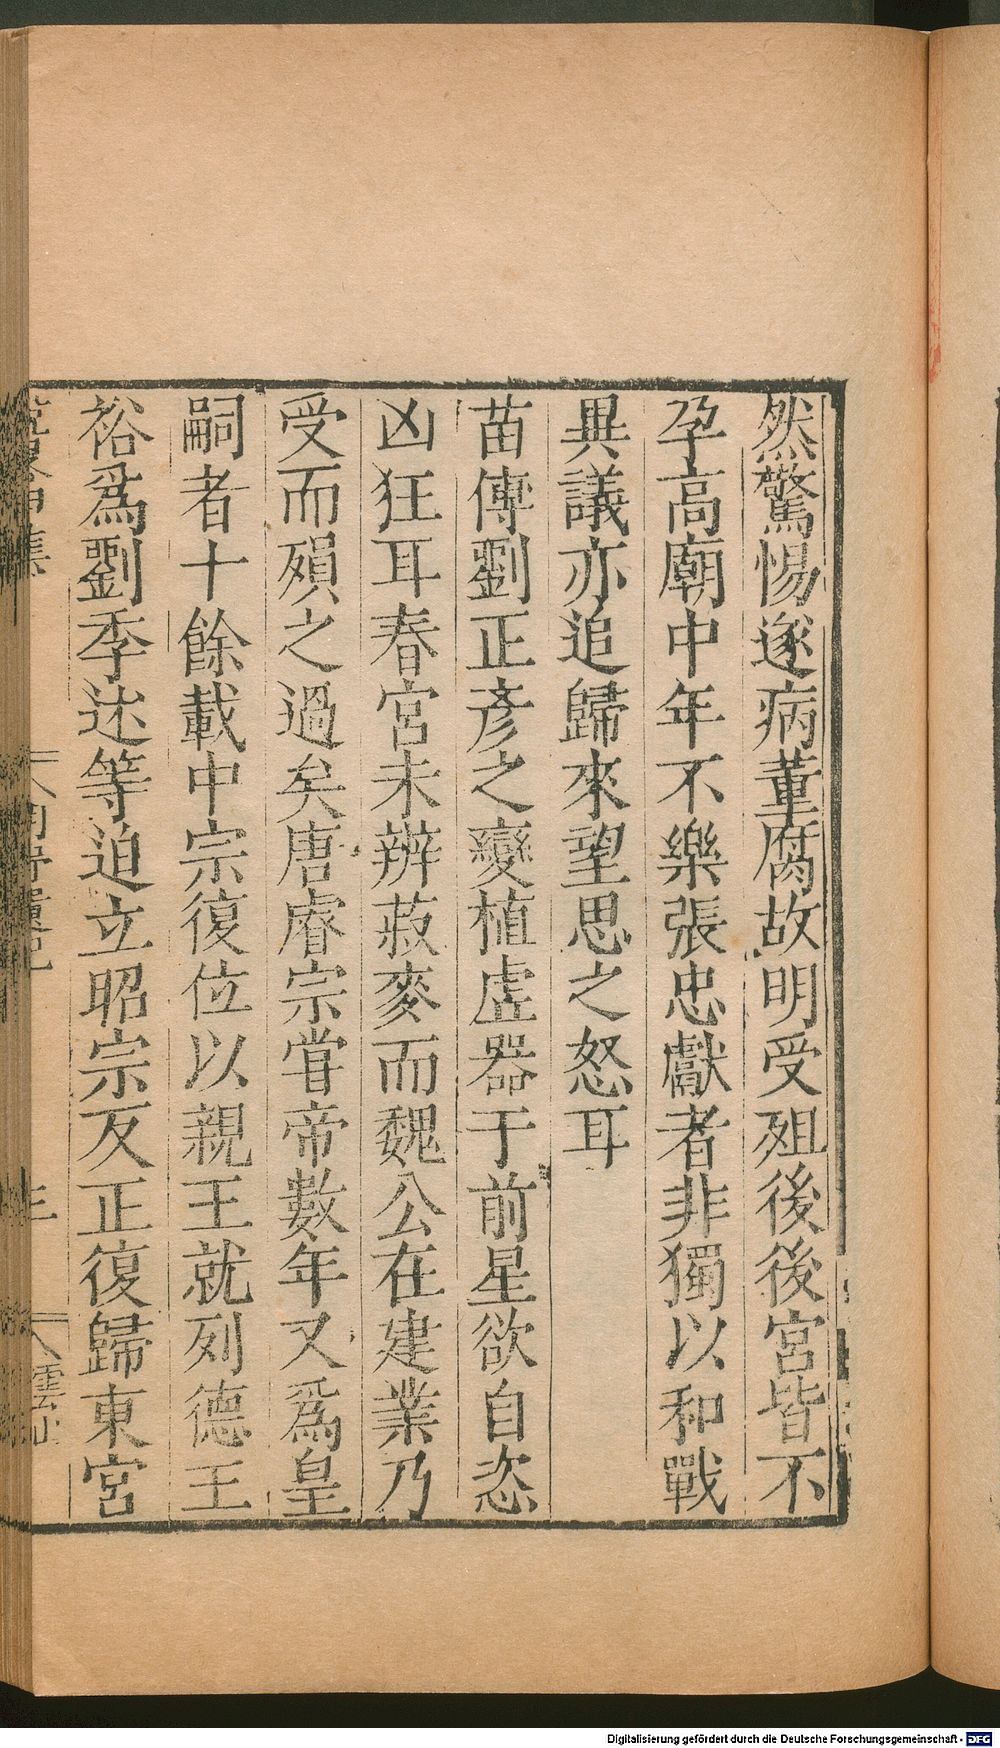 然驚惕遂病董腐故明受殂後後宮皆不
孕高廟中年不樂張忠獻者非獨以和戰
異議亦追歸來望思之怒耳
苗傅劉正彥之變植虛器于前星欲自恣
凶狂耳春宮未辨菽麥而魏公在建業乃
受而殞之過矣唐睿宗甞帝數年又爲皇
嗣者十餘載中宗復位以親王就列德王
裕爲劉季述等迫立昭宗反正復歸東宮
Digitalisierung gefördert durch die Deutsche Forschungsgemeinschaft - DFG